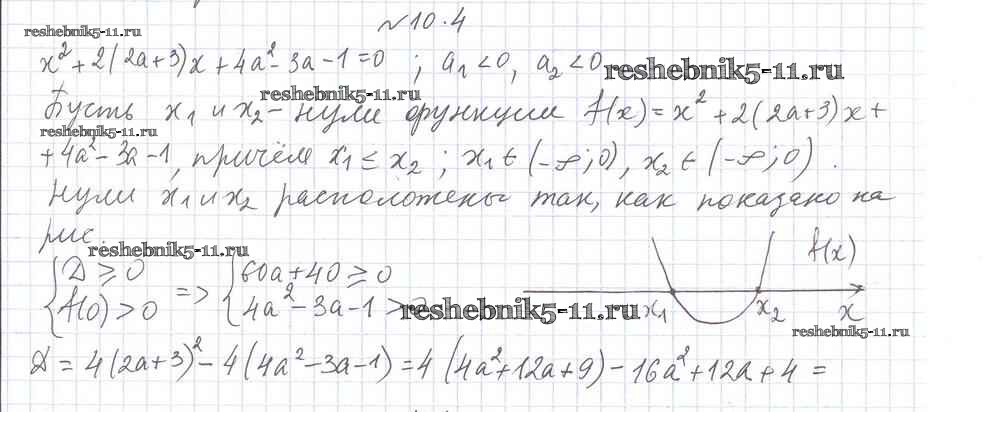 №10.4
reshebnik5-11.ru
x² + 2(2a+3)x + 4a² - 3a - 1 = 0 ; a₁ < 0, a₂ < 0
reshebnik5-11.ru
reshebnik5-11.ru
Пусть x₁ и x₂ - нули функции f(x) = x² + 2(2a+3)x +
reshebnik5-11.ru
+ 4a² - 3a - 1, причём x₁ ≤ x₂ ; x₁ ∈ (-∞; 0), x₂ ∈ (-∞; 0).
Нули x₁ и x₂ расположены так, как показано на
рис.
reshebnik5-11.ru
{ D ≥ 0 => { 60a + 40 ≥ 0
{ f(0) > 0 { 4a² - 3a - 1 >
reshebnik5-11.ru
f(x)
x₁ x₂ x
reshebnik5-11.ru
D = 4(2a+3)² - 4(4a² - 3a - 1) = 4(4a² + 12a + 9) - 16a² + 12a + 4 =